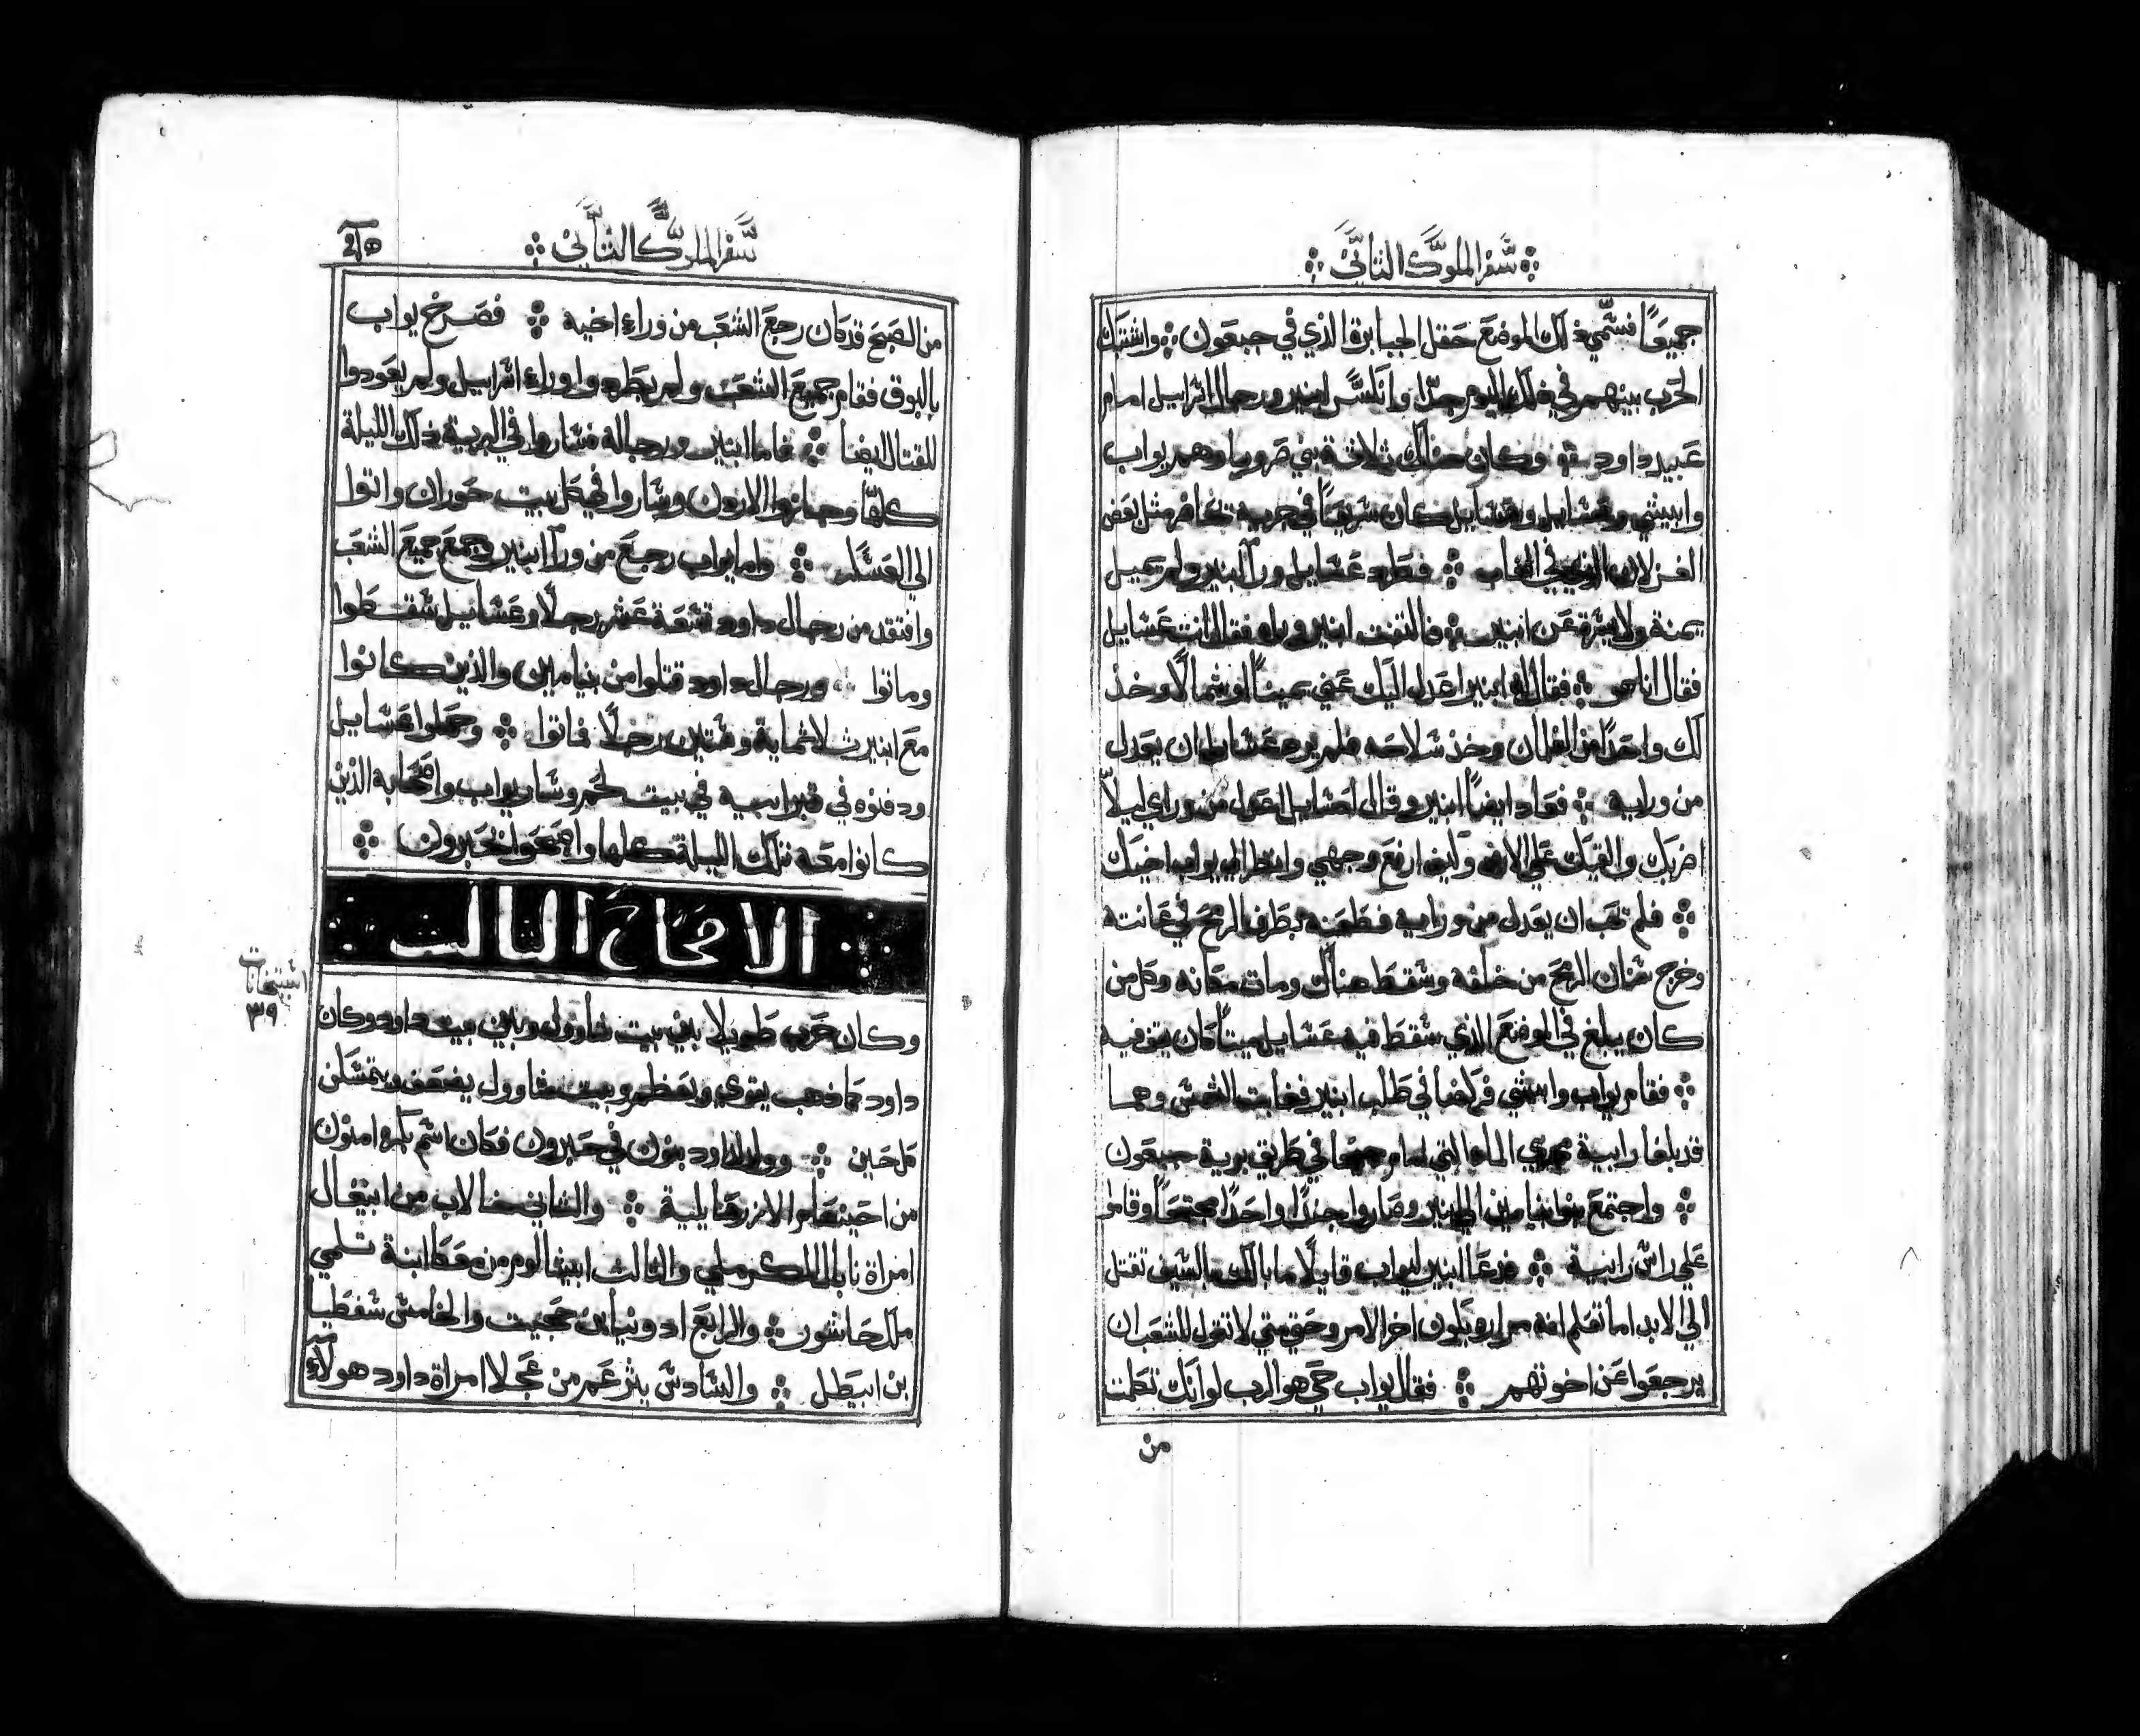 سفر الملوك الثاني
جميعًا فسمي ذلك الموضع حقل الجبابرة الذي في جبعون واشتبك
الحرب بينهم في ذلك اليوم جدًا وانكسر ابنير ورجال اسراييل امام
عبيد داود وكان هناك ثلاثة بني صرويا وهم يواب
وابيشي وعسايل وعسايل كان سريعًا في جريه مثل بعض
الغزلان الذي في الغاب فطرد عسايل ورآ ابنير ولم يميل
يمنة ولا يسرة عن ابنير فالتفت ابنير وراه فقال انت عسايل
فقال انا هو فقال له ابنير اعدل اليك عني يمينًا او شمالًا وخذ
لك واحدًا من الغلمان وخذ سلاحه فلم يرد عسايل ان يعدل
من ورايه فعاد ايضًا ابنير وقال لعسايل اعدل من وراي ليلّا
اضربك والقيك علي الارض وكيف ارفع وجهي وانظر الي يواب اخيك
فلم يحب ان يعدل من ورايه فطعنه بطرف الرمح في عانته
وخرج سنان الرمح من خلفه وسقط هناك ومات مكانه وكل من
كان يبلغ في الموضع الذي سقط فيه عسايل ميتًا كان يقف فيه
فقام يواب وابيشي فركضا في طلب ابنير فغابت الشمس وهما
قد بلغا رابية مجري الما التي امام في طريق برية جبعون
واجتمع بنو بنيامين الي ابنير وصاروا جندًا واحدًا مجتمعًا وقاموا
علي راس رابية فدعا ابنير ليواب قايلًا ما بالك بالسيف تقتل
الي الابد اما تعلم انه اخر الامر وحتي متي لا تقول للشعب ان
يرجعوا عن اخوتهم فقال يواب حي هو الرب لو انك تكلمت
من
سفر الملوك الثاني
من الصبح قد كان رجع الشعب من وراء اخيه فصرخ يواب
بالبوق فقام جميع الشعب ولم يطردوا وراء اسراييل ولم يعودوا
للقتال ايضا فاما ابنير ورجاله فساروا في البرية ذلك الليلة
كلها وجازوا الاردن وساروا في كل بيت حوران واتوا
الي العسكر واما يواب رجع من ورآ ابنير وجمع جميع الشعب
وافتقد من رجال داود تسعة عشر رجلًا وعسايل سقطوا
وماتوا ورجال داود قتلوا من بنيامين والذين كانوا
مع ابنير ثلاثماية وستين رجلًا فماتوا وحملوا عسايل
ودفنوه في قبر ابيه في بيت لحم وسار يواب واصحابه الذين
كانوا معه تلك الليلة كلها واصبحوا بحبرون
الاصحاح الثالث
وكان حرب طويلا بين بيت شاوول وبين بيت داود وكان
داود كما ذهب يقوي ويعظم وبيت شاوول يضعف ويتمسكن
كل حين وولد لداود بنون في حبرون فكان اسم بكره امنون
من احينعام الازرعايلية والثاني خالاب من ابيغال
امراة نابال الكرملي والثالث ابيشالوم من معكا ابنة تلمي
ملك جاشور والرابع ادونيا بن حجيت والخامس سفطيا
بن ابيطل والسادس يثرعم من عجلا امراة داود هولاء
٣٩